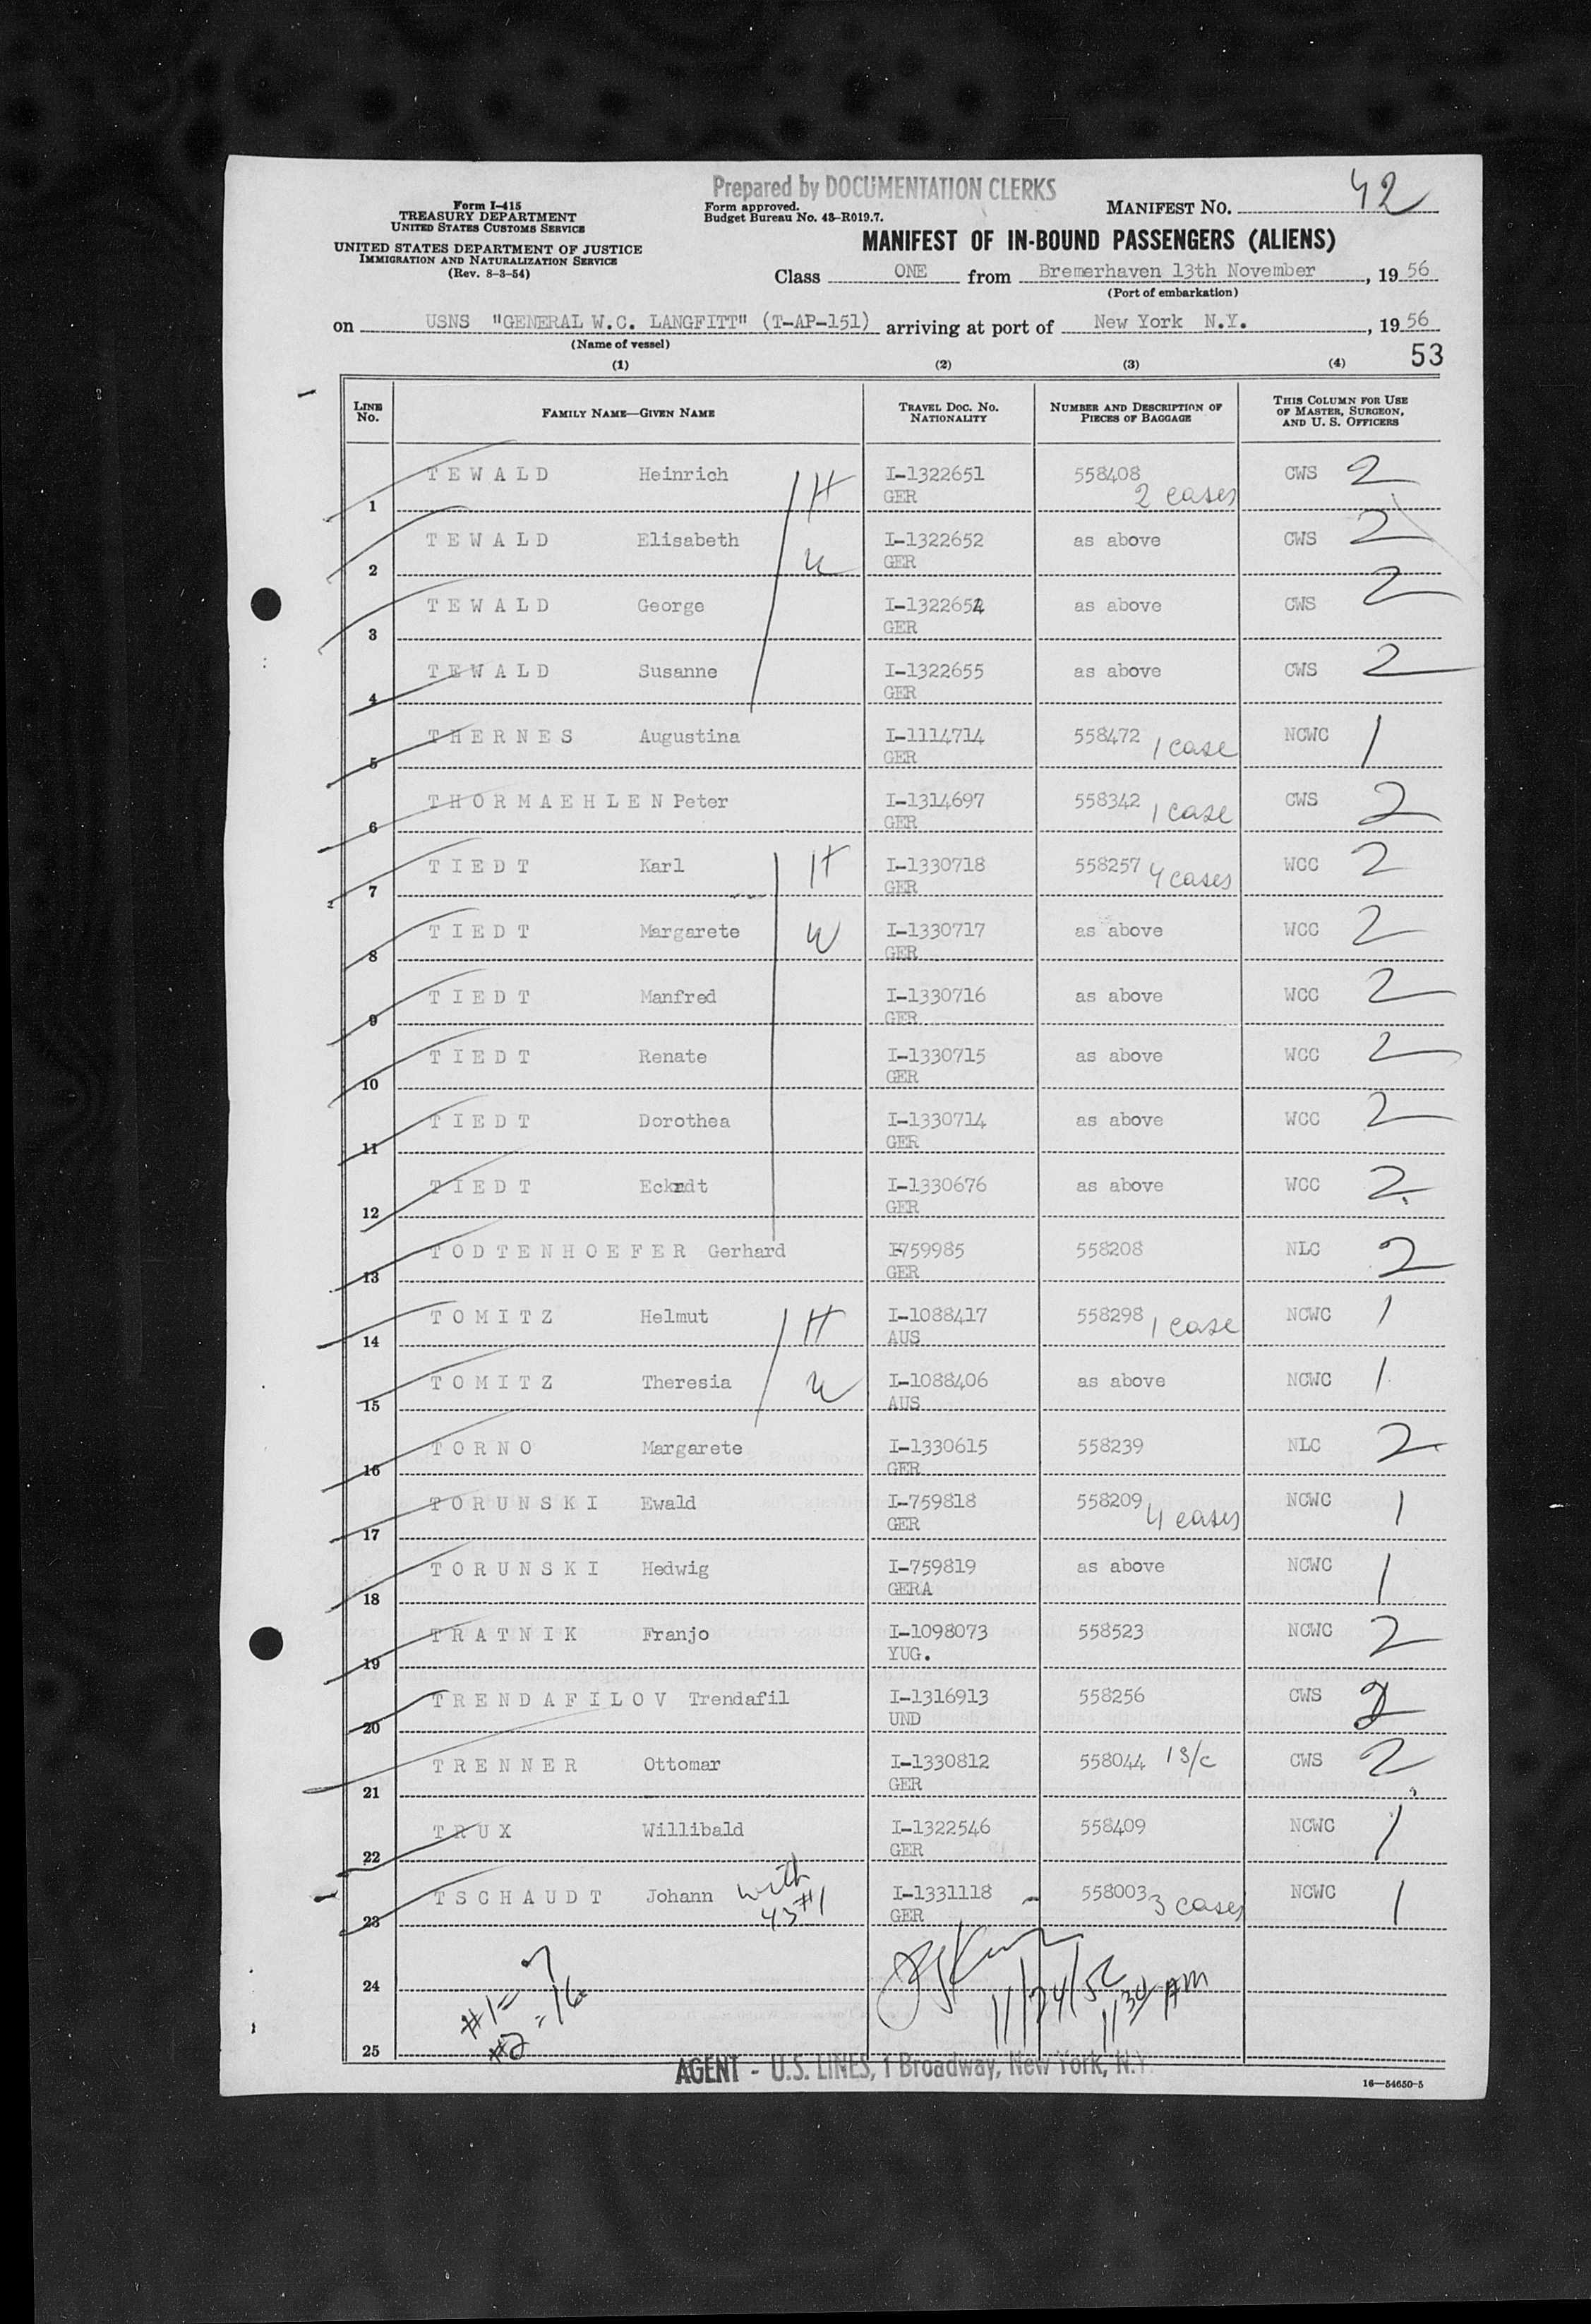 Prepared by DOCUMENTATION CLERKS
42
Form I-415
TREASURY DEPARTMENT
UNITED STATES CUSTOMS SERVICE
Form approved.
Budget Bureau No. 43-R019.7.
MANIFEST NO.
UNITED STATES DEPARTMENT OF JUSTICE
IMMIGRATION AND NATURALIZATION SERVICE
(Rev. 8-3-54)
MANIFEST OF IN-BOUND PASSENGERS (ALIENS)
Class ONE from Bremerhaven 13th November, 1956
(Port of embarkation)
on USNS "GENERAL W.C. LANGFITT" (T-AP-151) arriving at port of New York N.Y., 1956
(Name of vessel)
53
(1) (2) (3) (4)
LINE NO. FAMILY NAME—GIVEN NAME TRAVEL DOC. NO. NATIONALITY NUMBER AND DESCRIPTION OF PIECES OF BAGGAGE THIS COLUMN FOR USE OF MASTER, SURGEON, AND U. S. OFFICERS
1 TEWALD Heinrich H I-1322651 GER 558408 2 cases CWS 2
2 TEWALD Elisabeth W I-1322652 GER as above CWS 2
3 TEWALD George I-1322654 GER as above CWS 2
4 TEWALD Susanne I-1322655 GER as above CWS 2
5 THERNES Augustina I-1114714 GER 558472 1 case NCWC 1
6 THORMAEHLEN Peter I-1314697 GER 558342 1 case CWS 2
7 TIEDT Karl H I-1330718 GER 558257 4 cases WCC 2
8 TIEDT Margarete W I-1330717 GER as above WCC 2
9 TIEDT Manfred I-1330716 GER as above WCC 2
10 TIEDT Renate I-1330715 GER as above WCC 2
11 TIEDT Dorothea I-1330714 GER as above WCC 2
12 TIEDT I-1330676 GER as above WCC 2
13 TODTENHOEFER Gerhard I-759985 GER 558208 NLC 2
14 TOMITZ Helmut H I-1088417 AUS 558298 1 case NCWC 1
15 TOMITZ Theresia W I-1088406 AUS as above NCWC 1
16 TORNO Margarete I-1330615 GER 558239 NLC 2
17 TORUNSKI Ewald I-759818 GER 558209 4 cases NCWC 1
18 TORUNSKI Hedwig I-759819 GERA as above NCWC 1
19 TRATNIK Franjo I-1098073 YUG. 558523 NCWC 2
20 TRENDAFILOV Trendafil I-1316913 UND 558256 CWS 2
21 TRENNER Ottomar I-1330812 GER 558044 1 S/C CWS 2
22 TRUX Willibald I-1322546 GER 558409 NCWC 1
23 TSCHAUDT Johann with 43#1 I-1331118 GER 558003 3 cases NCWC 1
24 #1= 7
#2 = 16
11/24/56 1130 AM
25
AGENT - U.S. LINES, 1 Broadway, New York, N.Y.
16—54650-5